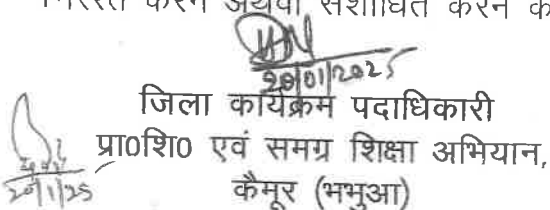 निरस्त करने अथवा संशोधित करने क
20/01/2025
जिला कार्यक्रम पदाधिकारी
प्रा०शि० एवं समग्र शिक्षा अभियान,
20/1/25
कैमूर (भभुआ)